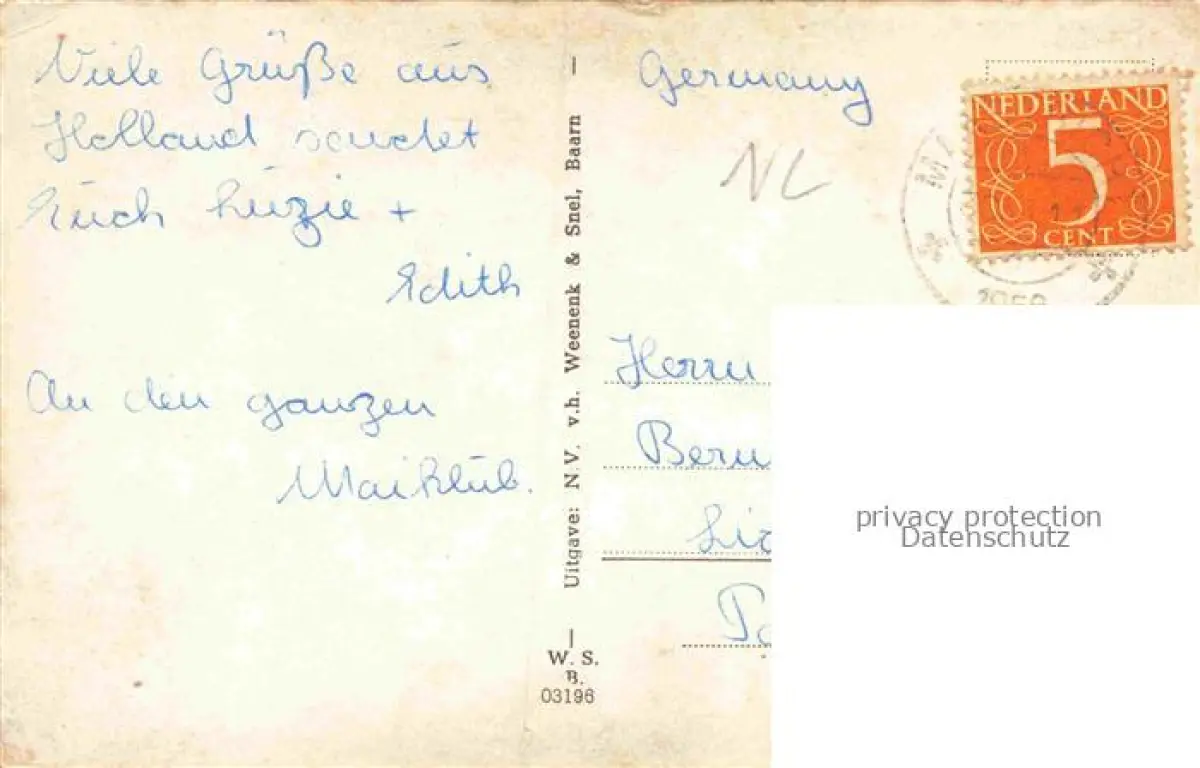 Viele Grüße aus
Holland sendet
Euch Luzie +
Edith
An den ganzen
Maiklub.
Uitgave: N.V. v.h. Weenenk & Snel, Baarn
W. S.
B.
03196
Germany
NL
NEDERLAND
5
CENT
Herrn
privacy protection
Datenschutz